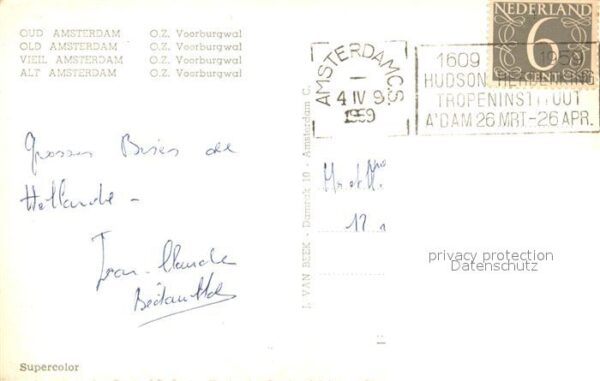 OUD AMSTERDAM O.Z. Voorburgwal
OLD AMSTERDAM O.Z. Voorburgwal
VIEIL AMSTERDAM O.Z. Voorburgwal
ALT AMSTERDAM O.Z. Voorburgwal
NEDERLAND
6
CENT
AMSTERDAM C.S
4 IV 9
1959
1609 1959
HUDSON HERDENKING
TROPENINSTITUUT
A'DAM 26 MRT-26 APR.
Grosses Bises de
Hollande -
Jean-Claude
J. VAN BEEK - Damrak 10 - Amsterdam C.
Mr et Mme
12
privacy protection
Datenschutz
Supercolor